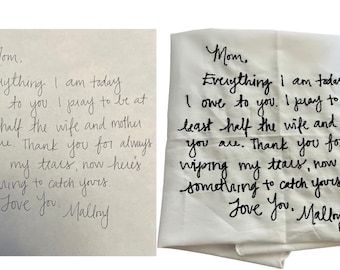 Mom,
erything I am today
to you I pray to be at
half the wife and mother
are. Thank you for always
my tears, now here's
hing to catch yours.
Love You,
Mallory
Mom,
Everything I am today
I owe to you. I pray to
least half the wife and
you are. Thank you for
wiping my tears, now
something to catch yours
Love You,
Mallory